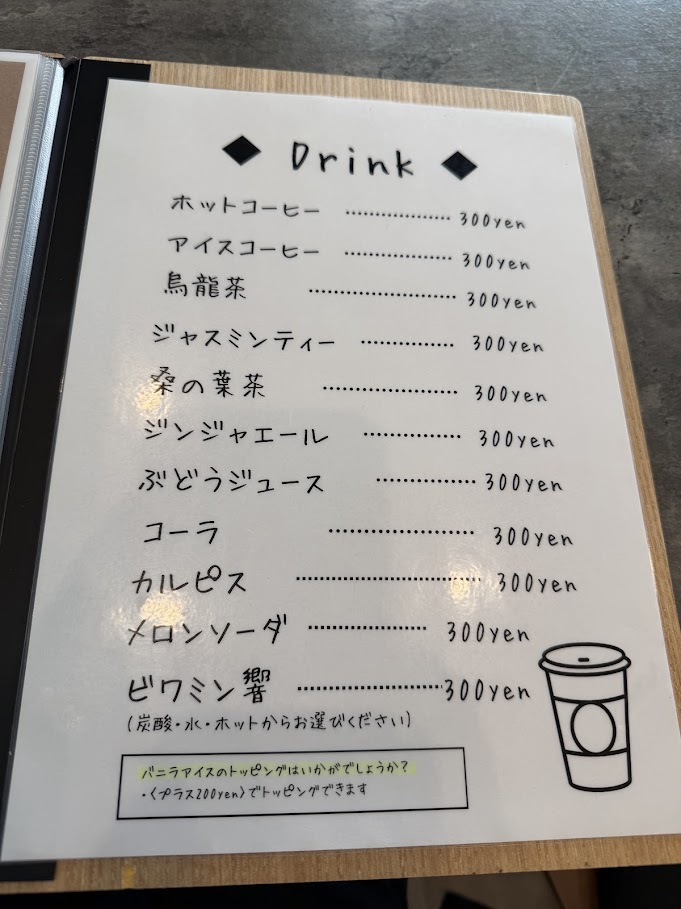 ◆ Drink ◆
ホットコーヒー ………………… 300yen
アイスコーヒー ………………… 300yen
烏龍茶 ………………… 300yen
ジャスミンティー ………………… 300yen
桑の葉茶 ………………… 300yen
ジンジャエール ………………… 300yen
ぶどうジュース ………………… 300yen
コーラ ………………… 300yen
カルピス ………………… 300yen
メロンソーダ ………………… 300yen
ビワミン響 ………………… 300yen
(炭酸・水・ホットからお選びください)
バニラアイスのトッピングはいかがでしょうか?
・〈プラス200yen〉でトッピングできます